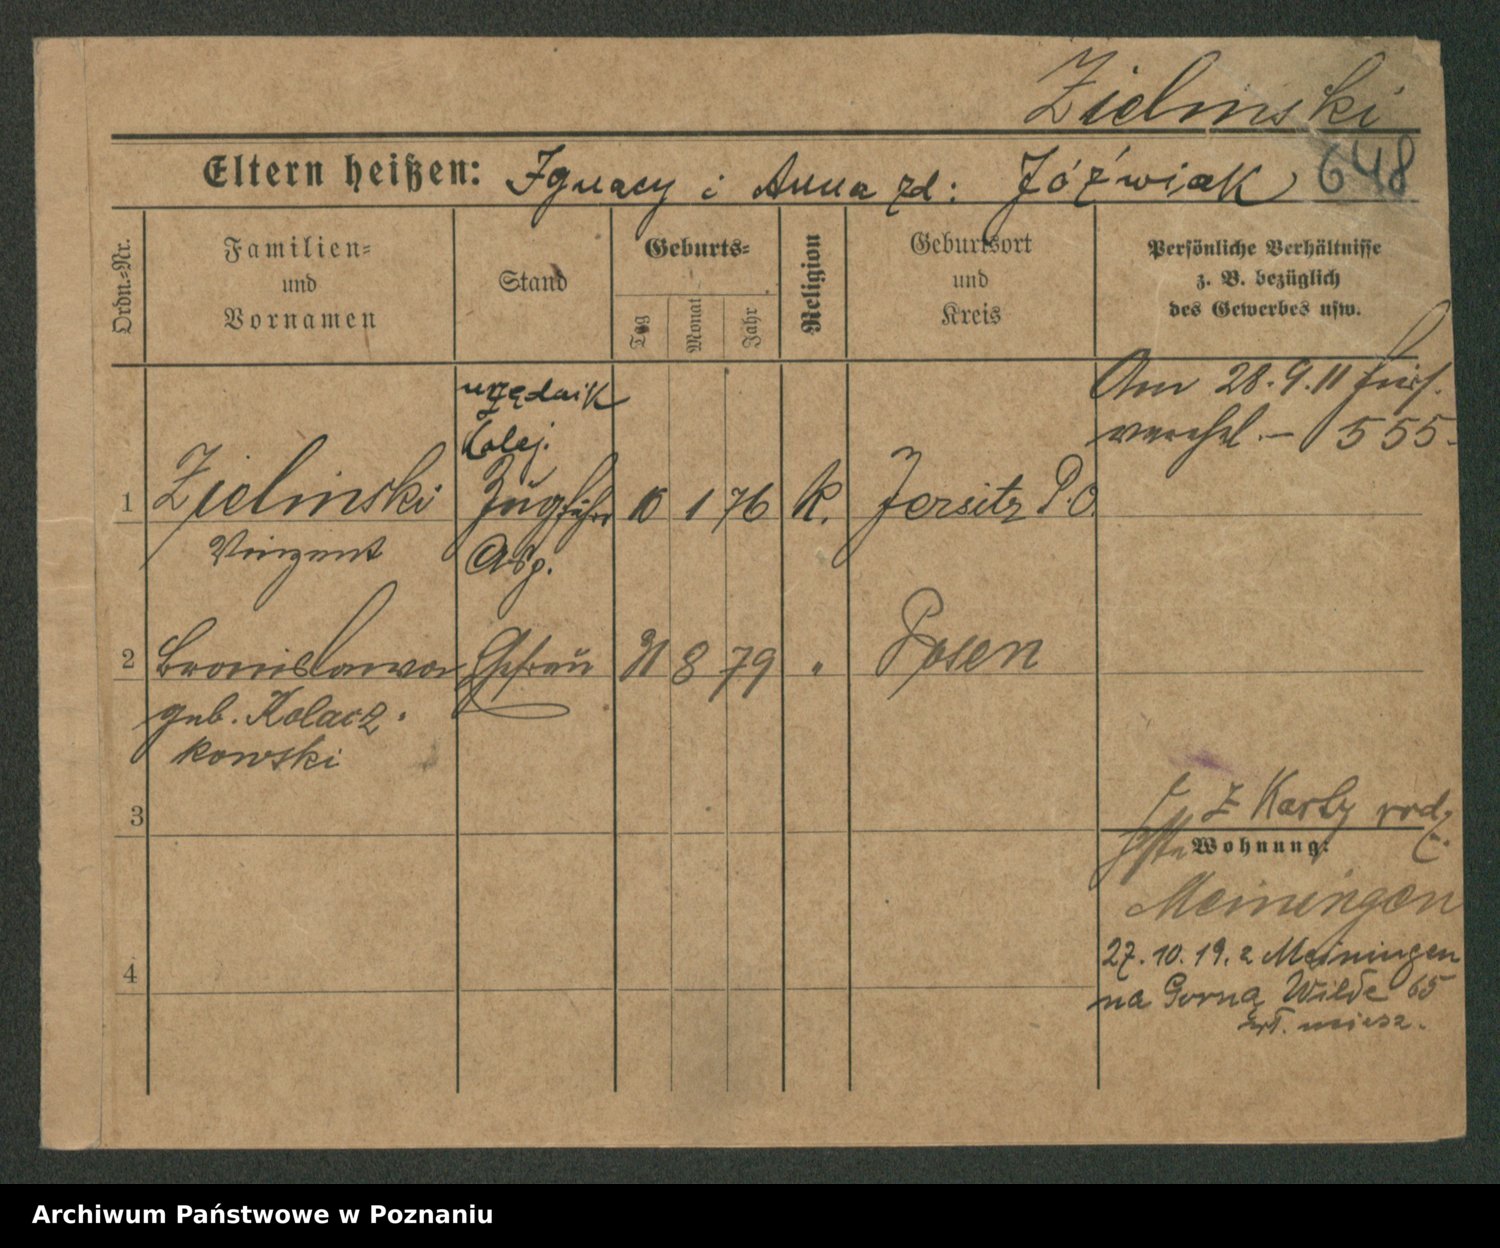 Zielinski
Eltern heißen: Ignacy i Anna zd: Jóźwiak 648
Ordn.-Nr.
Familien-
und
Vornamen
Stand
Geburts-
Tag
Monat
Jahr
Religion
Geburtsort
und
Kreis
Persönliche Verhältnisse
z. B. bezüglich
des Gewerbes usw.
Am 28.9.11
555.
urzędnik
kolej.
1 Zielinski Zugführer 10 1 76 K. Jersitz P.O.
Vinzent Asp.
2 Bronislawa Ehefrau 8 79 " Posen
geb. Kolacz-
kowski
3
z Karty rodz.
Wohnung:
Meiningen
4
27.10.19. z Meiningen
na Gorną Wilde 65
miesz.
Archiwum Państwowe w Poznaniu